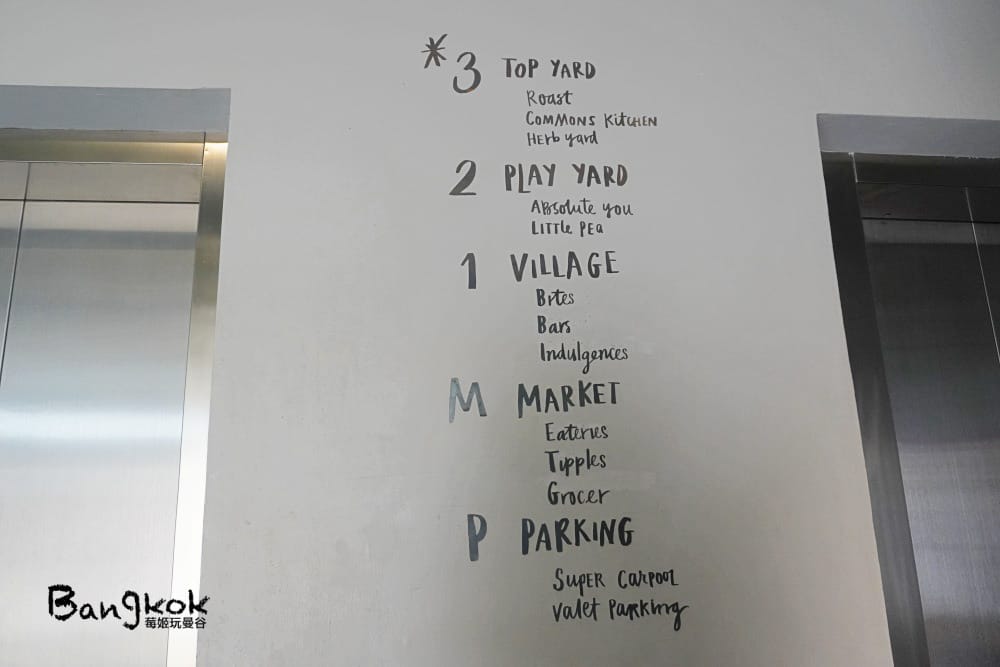 *3 TOP YARD
Roast
COMMONS KITCHEN
Herb yard
2 PLAY YARD
Absolute you
LITTLE PEa
1 VILLAGE
Bites
Bars
Indulgences
M MARKET
Eateries
Tipples
Grocer
P PARKING
SUPER CARPOOL
Valet Parking
Bangkok
莓姬玩曼谷